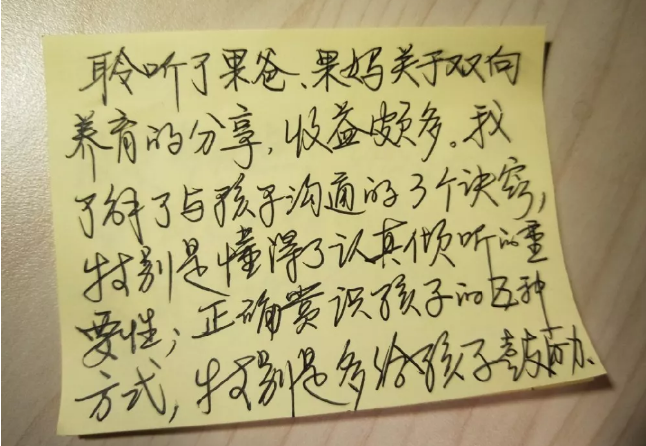 聆听了果爸、果妈关于双向
养育的分享，收益颇多。我
了解了与孩子沟通的3个诀窍，
特别是懂得了认真倾听的重
要性；正确赏识孩子的五种
方式，特别是多给孩子鼓励、